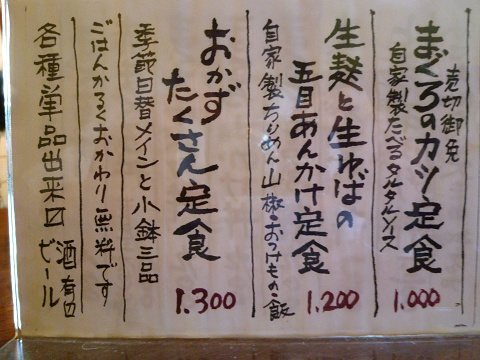 売切御免
まぐろのカツ定食
自家製たべるタルタルソース
1.000
生麩と生ゆばの
五目あんかけ定食
自家製ちりめん山椒・おつけもの・飯
1.200
おかず
たくさん定食
季節日替メインと小鉢三品
1.300
ごはんかるくおかわり無料です
各種単品出来〼
酒有〼
ビール